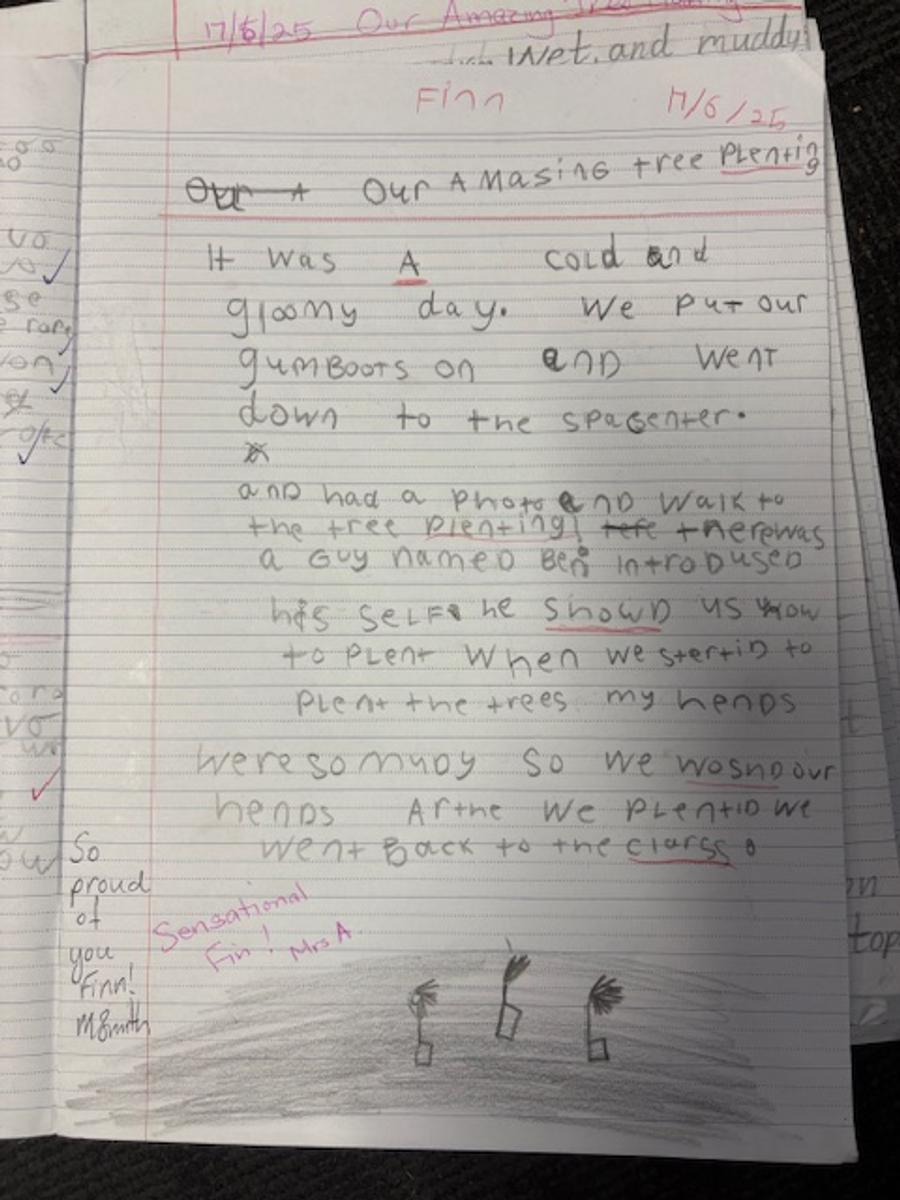 17/6/25 Our Amazing Tree
Wet and muddy
Finn 17/6/25
Our A Our AMASING tree PLenting
It was A cold and
gloomy day. We put our
gumBoots on anD Went
down to the spasenter.
anD had a photo anD Walk to
the tree plenting therewas
a Guy nameD Ben introDuseD
his SeLF he showD us how
to PLent When we stertiD to
PLent the trees my henDs
weresomuDy So we wosnDour
henDs Arthe We PLentiD we
went Back to the clarss.
Sensational
Fin! Mrs A.
So
proud
of
you
Finn!
M Smith
top